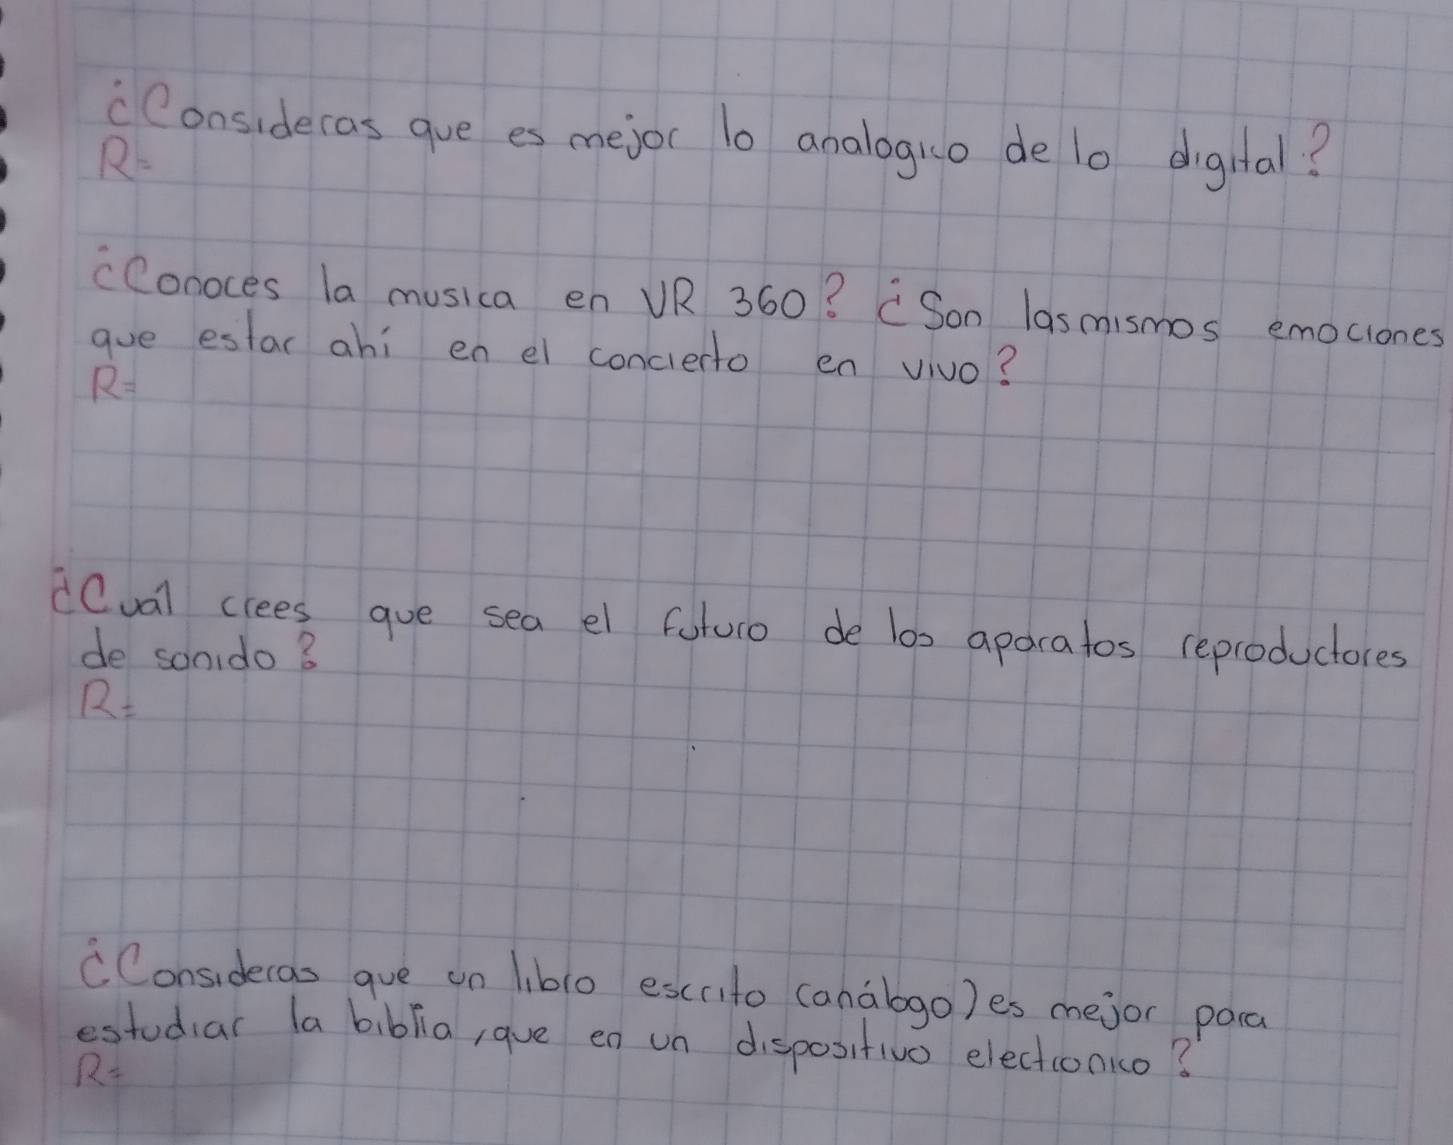 ¿Consideras que es mejor lo analogico de lo digital?
R=
¿Conoces la musica en VR 360? ¿Son las mismos emociones
que estar ahi en el concierto en vivo?
R=
¿Cuál crees que sea el futuro de los aparatos reproductores
de sonido?
R=
¿Consideras que un libro escrito (análogo) es mejor para
estudiar la biblia, que en un dispositivo electronico?
R=